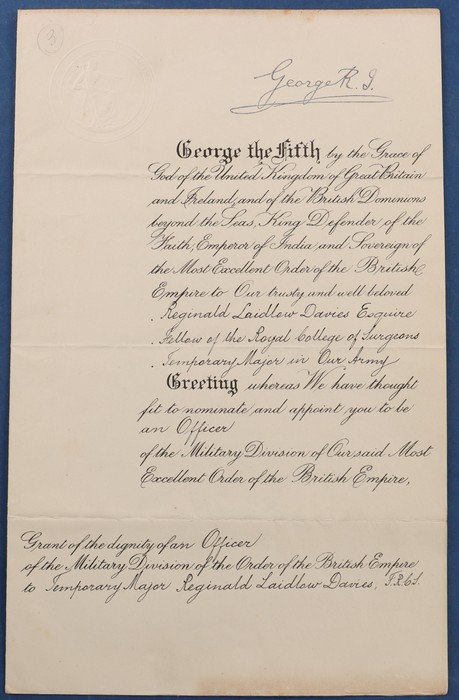 3
George R.I.
George the Fifth by the Grace of
God of the United Kingdom of Great Britain
and Ireland, and of the British Dominions
beyond the Seas, King Defender of the
Faith, Emperor of India and Sovereign of
the Most Excellent Order of the British
Empire to Our trusty and well beloved
Reginald Laidlow Davies Esquire
Fellow of the Royal College of Surgeons
Temporary Major in Our Army
Greeting whereas We have thought
fit to nominate and appoint you to be
an Officer
of the Military Division of Our said Most
Excellent Order of the British Empire,
Grant of the dignity of an Officer
of the Military Division of the Order of the British Empire
to Temporary Major Reginald Laidlow Davies, F.R.C.S.